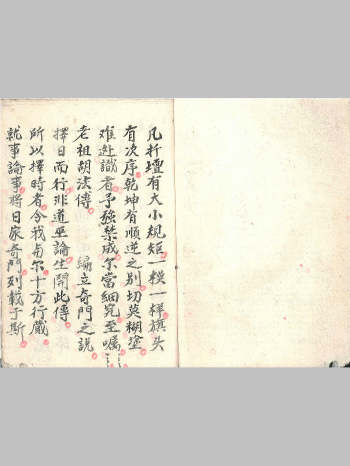 凡折壇有大小規矩一模一样旗头
有次序乾坤有順逆之别切莫糊塗
难逃識者予強禁戒尔當細究至嘱
老祖胡法傳 编立奇門之説
擇日而行非道巫論生開此傳
所以擇時者令我与尔十方行藏
就事論事将日家奇門列載于斯